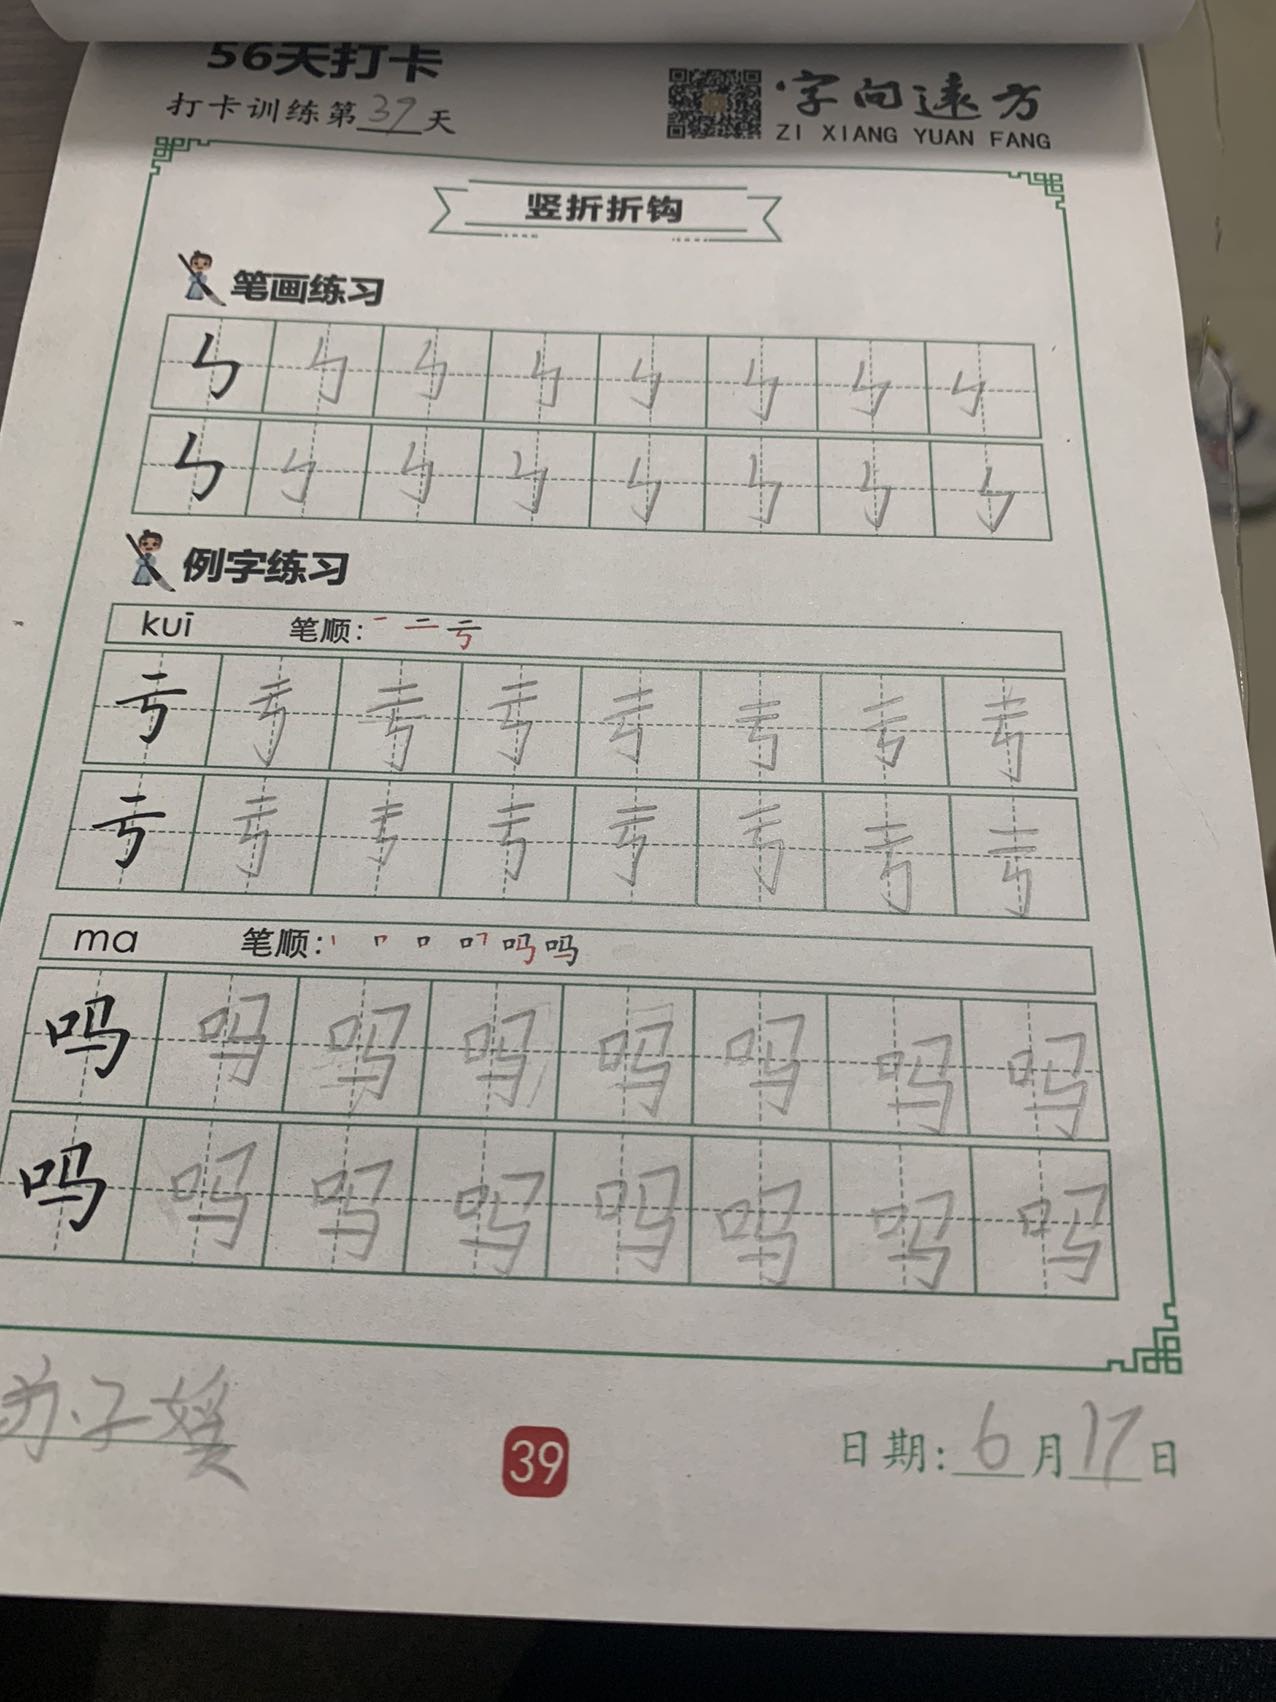 56天打卡
打卡训练第39天
字向远方
ZI XIANG YUAN FANG
竖折折钩
笔画练习
㇉ ㇉ ㇉ ㇉ ㇉ ㇉ ㇉ ㇉
㇉ ㇉ ㇉ ㇉ ㇉ ㇉ ㇉ ㇉
例字练习
kuī 笔顺: 一 二 亏
亏 亏 亏 亏 亏 亏 亏 亏
亏 亏 亏 亏 亏 亏 亏 亏
ma 笔顺:
吗 吗 吗 吗 吗 吗 吗 吗
吗 吗 吗 吗 吗 吗 吗 吗
苏子媛
39
日期: 6月17日